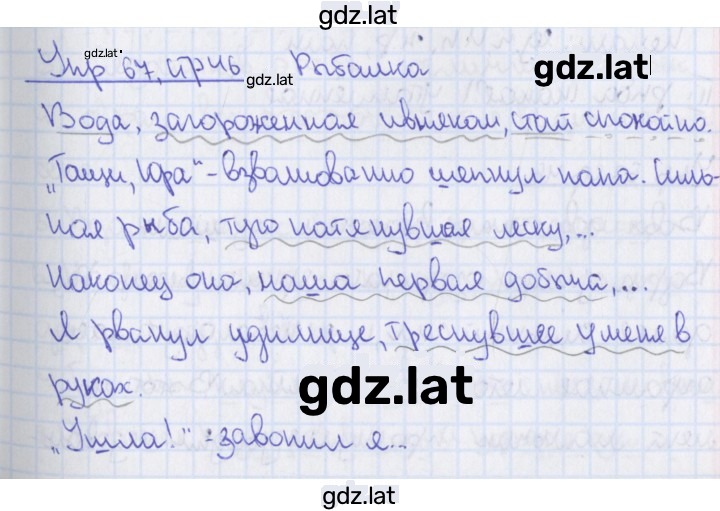 gdz.lat
Упр 67, стр 46 Рыбалка
gdz.lat gdz.lat gdz.lat
Вода, загороженная ивняком, стоит спокойно.
„Тащи, Юра“ - взволновано шепнул папа. Силь-
ная рыба, туго натянувшая леску,...
Наконец она, наша первая добыча,...
Я рванул удилище, треснувшее у меня в
руках. gdz.lat
„Ушла!“ - завопил я...
gdz.lat